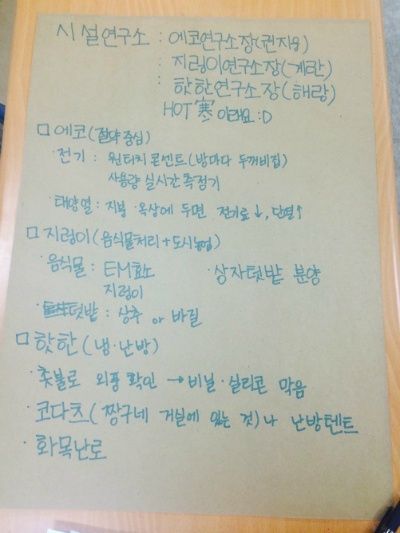 시설연구소 : 에코연구소장(권지용)
: 지렁이연구소장(계란)
: 핫한연구소장(해랑)
HOT 寒 이래요 :D
□ 에코(절약 중심)
· 전기 : 원터치 콘센트(방마다 두꺼비집)
사용량 실시간 측정기
· 태양열 : 지붕·옥상에 두면, 전기료↓, 단열↑
□ 지렁이(음식물처리+도시농업)
· 음식물 : EM효소 · 상자텃밭 분양
지렁이
· 텃밭 : 상추 or 바질
□ 핫한(냉·난방)
· 촛불로 외풍 확인 → 비닐·실리콘 막음
· 코다츠(짱구네 거실에 있는 것)나 난방텐트
· 화목난로